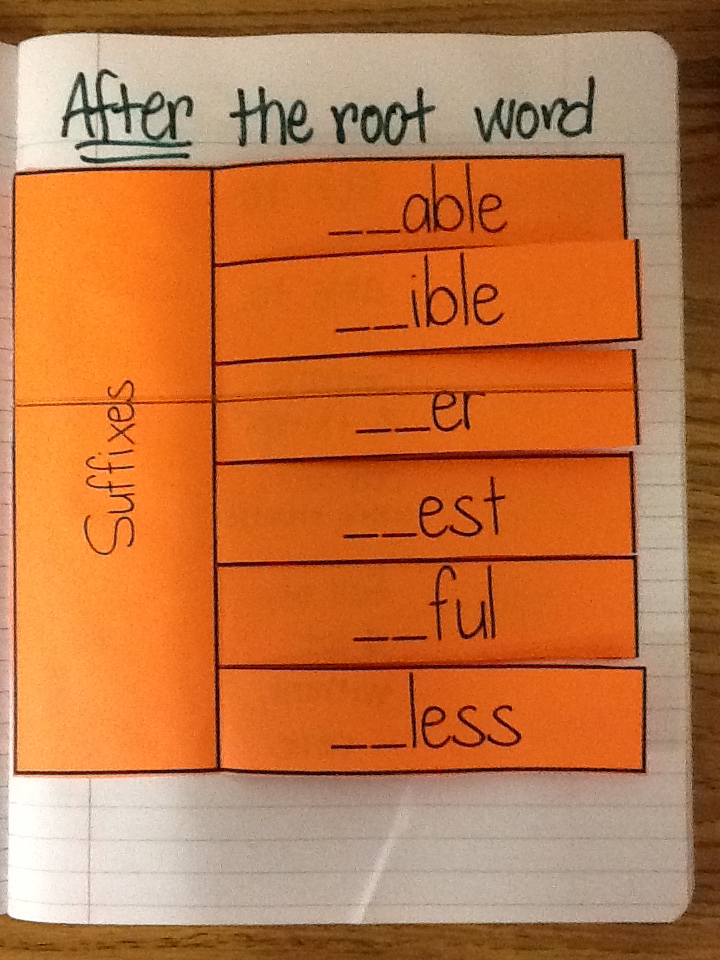 After the root word
Suffixes
__able
__ible
__er
__est
__ful
__less